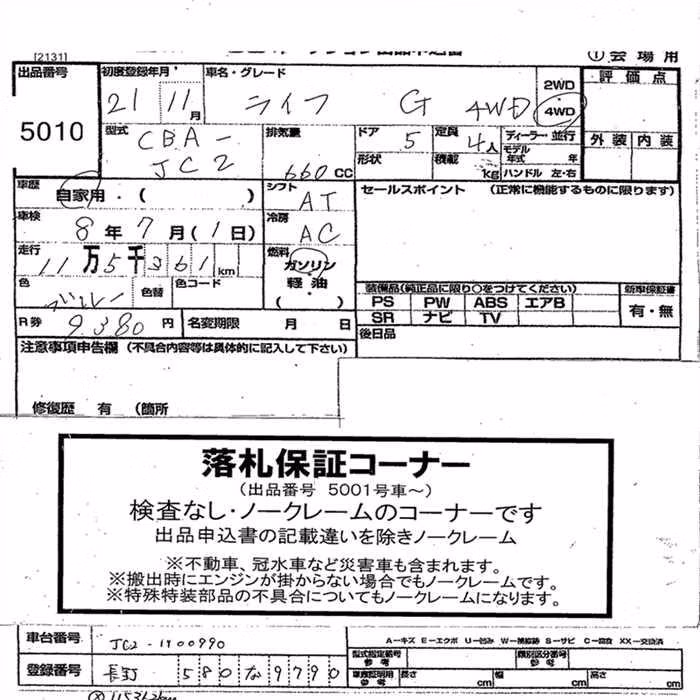 [2131]
①会場用
出品番号 5010
初度登録年月 21 11月
車名・グレード ライフ G 4WD
2WD
4WD
評価点
外装 内装
型式 CBA-JC2
排気量 660CC
ドア 5
定員 4人
ディーラー・並行
形状
積載 kg
モデル年式 年
ハンドル 左・右
車歴 自家用・( )
シフト AT
セールスポイント (正常に機能するものに限ります)
車検 8年7月(1日)
冷房 AC
走行 11万5千361km
燃料 ガソリン
軽油
・( )
色
色替
色コード
装備品(純正品に限り○をつけてください)
新車保証書
PS PW ABS エアB
有・無
SR ナビ TV
R券 9380円
名変期限 月 日
後日品
注意事項申告欄 (不具合内容等は具体的に記入して下さい)
修復歴 有 (箇所
落札保証コーナー
(出品番号 5001号車~)
検査なし・ノークレームのコーナーです
出品申込書の記載違いを除きノークレーム
※不動車、冠水車など災害車も含まれます。
※搬出時にエンジンが掛からない場合でもノークレームです。
※特殊特装部品の不具合についてもノークレームになります。
車台番号 JC2-1100990
A-キズ E-エクボ U-凹み W-補修跡 S-サビ C-腐食 XX-交換済
型式指定番号 参考
類別区分番号 参考
登録番号 長野 580 な 9790
車庫証明用 参考 長さ cm 幅 cm 高さ cm